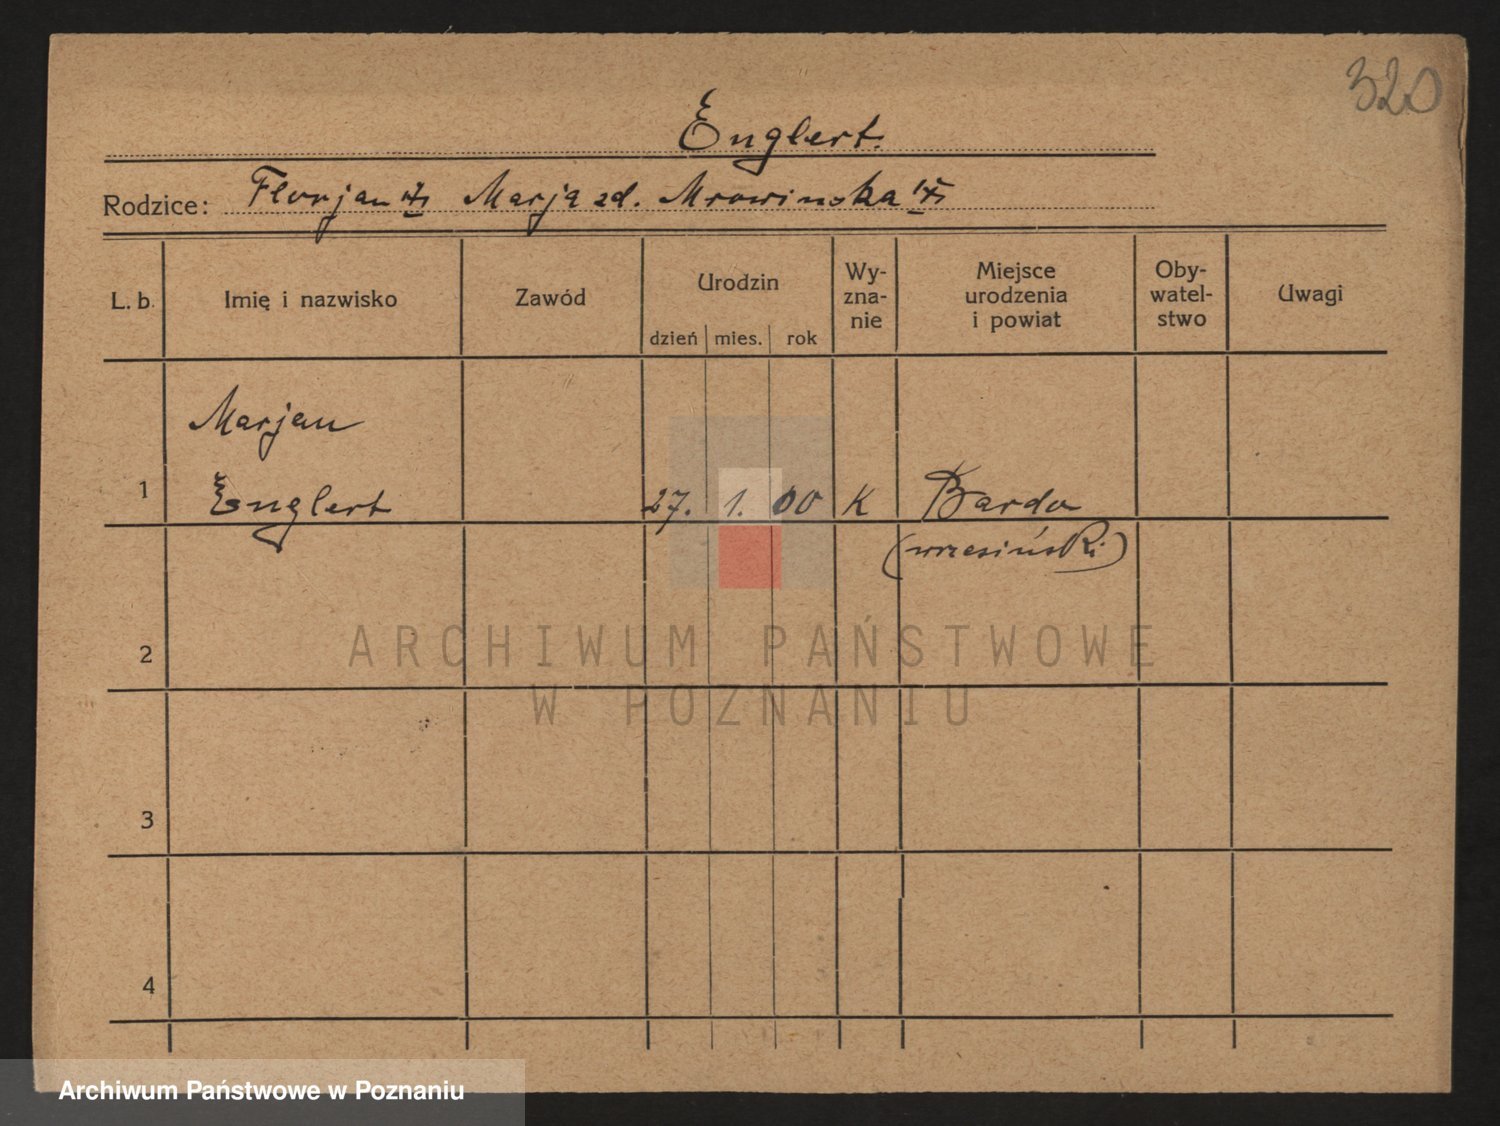 320
Englert.
Rodzice: Florjan Marja zd. Mrowinska
L. b. Imię i nazwisko Zawód Urodzin dzień mies. rok Wy-zna-nie Miejsce urodzenia i powiat Oby-watel-stwo Uwagi
Marjan
1 Englert 27. 1. 00 K Bardo
(wrzesiński)
2
ARCHIWUM PAŃSTWOWE
W POZNANIU
3
4
Archiwum Państwowe w Poznaniu